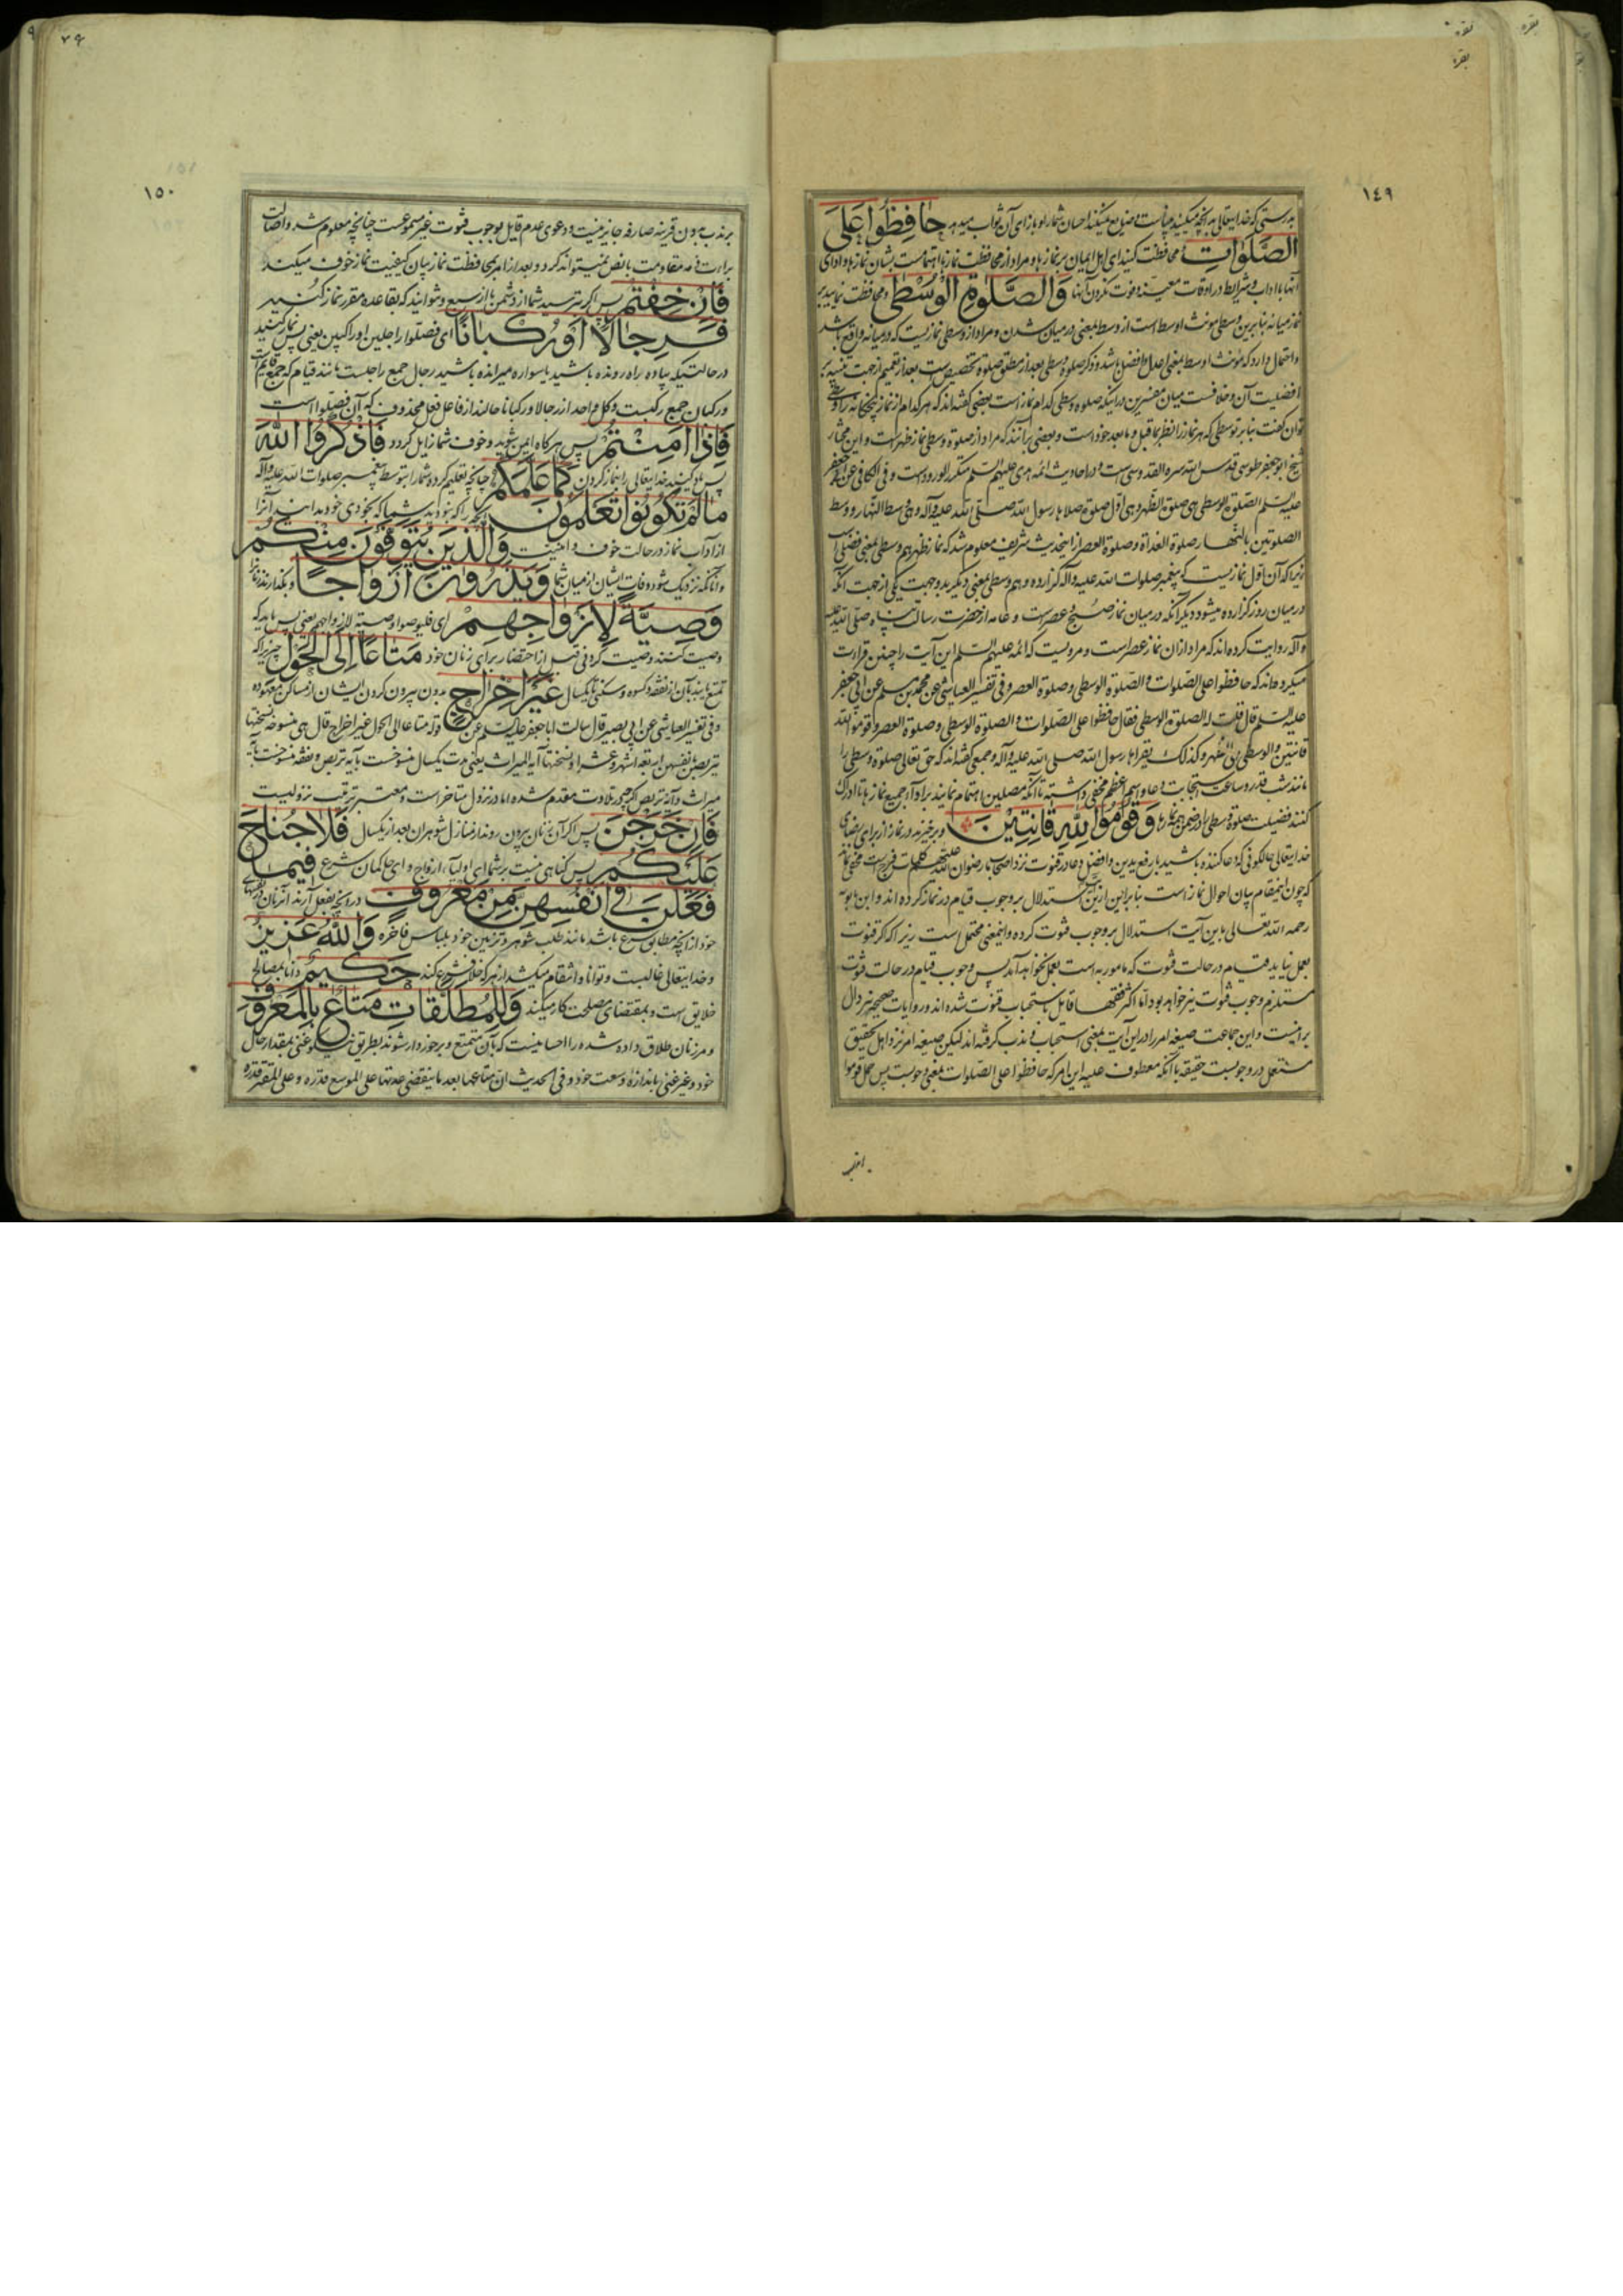 بقره
بقره
بقره
١٤٩
بدرستی که خدایتعالی بآنچه میکنید بیناست و ضایع نمیکند احسان شما را و بازای آن ثواب میدهد حَافِظُوا عَلَی
الصَّلَوَاتِ محافظت کنید ای اهل ایمان بر نمازها و مراد از محافظت نمازها اهتمامست بشان نمازها و ادای
آنها بآداب و شرایط در اوقات معینه و فوت نکردن آنها وَالصَّلوةِ الوُسْطیٰ و محافظت نمایید بر
نماز میانه بنابرین وسطی مونث اوسط است از وسط بمعنی در میان شدن و مراد از وسطی نمازیست که در میانه واقع باشد
و احتمال دارد که مونث اوسط بمعنی اعدل و افضل باشد و ذکر صلوة وسطی بعد از مطلق صلوة تخصیص است بعد از تعمیم از جهت تنبیه بر
افضلیت آن و خلافست میان مفسرین در اینکه صلوة وسطی کدام نماز است بعضی گفته‌اند که هر کدام از نماز پنجگانه را وسطی
توان گفت بنابر توسطی که هر نماز را نظر بما قبل و ما بعد خود است و بعضی برآنند که مراد از صلوة وسطی نماز ظهر است و این مختار
شیخ ابو جعفر طوسی قدس الله سره القدوسی است و در احادیث ائمه هدی علیهم السلم متکرر الورود است و فی الکافی عن ابی جعفر
علیه السلم الصلوة الوسطی هی صلوة الظهر و هی اول صلوة صلاها رسول الله صلی الله علیه وآله و هی وسط النهار و وسط
الصلوتین بالنهار صلوة الغداة و صلوة العصر از این حدیث شریف معلوم شد که نماز ظهر هم وسطی بمعنی فضلی است
زیرا که آن اول نمازیست که پیغمبر صلوات الله علیه وآله گزارده و هم وسطی بمعنی دیگر بدو جهت یکی از جهت آنکه
در میان روز گزارده میشود دیگر آنکه در میان نماز صبح و عصر است و عامه از حضرت رسالت پناه صلی الله علیه
وآله روایت کرده‌اند که مراد از آن نماز عصر است و مرویست که ائمه علیهم السلم این آیت را چنین قراءت
میکرده‌اند که حافظوا علی الصلوات والصلوة الوسطی وصلوة العصر و فی تفسیر العیاشی عن محمد بن مسلم عن ابی جعفر
علیه السلم قال قلت له الصلوة الوسطی فقال حافظوا علی الصلوات والصلوة الوسطی وصلوة العصر وقوموا لله
قانتین والوسطی هی الظهر وکذلک یقراها رسول الله صلی الله علیه وآله و جمعی گفته‌اند که حق تعالی صلوة وسطی را
مانند شب قدر و ساعت استجابت دعا و اسم اعظم مخفی داشته تا آنکه مصلین اهتمام نمایند بر اداء جمیع نمازها تا ادراک
کنند فضیلت صلوة وسطی را در ضمن همه نمازها وَقُومُوا لِلّٰهِ قَانِتِیْنَ و برخیزید در نماز از برای رضای
خدایتعالی حالکونی که دعا کننده باشید
که چون اینمقام بیان احوال نماز است بنابراین ازین آیت استدلال بر وجوب قیام در نماز کرده‌اند و ابن بابویه
رحمه الله تعالی باین آیت استدلال بر وجوب قنوت کرده و اینمعنی محتمل است زیرا که اگر قنوت
بعمل نیاید قیام در حالت قنوت که مامور به است بعمل نخواهد آمد پس وجوب قیام در حالت قنوت
مستلزم وجوب قنوت نیز خواهد بود اما اکثر فقها قایل باستحباب قنوت شده‌اند و روایات صحیحه نیز دال
بر اینست و این جماعت صیغه امر را در این آیت بمعنی استحباب و ندب گرفته‌اند لیکن صیغه امر نزد اهل تحقیق
مستعمل در وجوبست حقیقه با آنکه معطوف علیه این امر که حافظوا علی الصلوات بمعنی وجوبست پس حمل قوموا
١٥٠
بر ندب بدون قرینه صارفه جایز نیست و دعوی عدم قایل بوجوب قنوت غیر مسموعست چنانچه معلوم شد و اصالت
براءت ذمه مقاومت با نص نمیتواند کرد و بعد از امر بمحافظت نماز بیان کیفیت نماز خوف میکند
فَاِنْ خِفْتُمْ پس اگر ترسید شما از دشمن یا از سبع و نتوانید که بقاعده مقرر نماز کنید
فَرِجَالًا اَوْ رُکْبَانًا ای فصلوا راجلین او راکبین یعنی پس نماز کنید
در حالتیکه پیاده راه رونده باشید یا سواره میرانده باشید رجال جمع راجلست مانند قیام که جمع قایم است
و رکبان جمع راکبست و کل واحد از رجالا و رکبانا حالند از فاعل فعل محذوف که آن فصلوا است
فَاِذَا اَمِنْتُمْ پس هرگاه ایمن شوید و خوف شما زایل گردد فَاذْکُرُوا اللّٰهَ
پس یاد کنید خدایتعالی را بنماز کردن کَمَا عَلَّمَکُمْ چنانچه تعلیم کرده شما را بتوسط پیغمبر صلوات الله علیه وآله
مَالَمْ تَکُونُوا تَعْلَمُونَ آنچه را که نبودید شما که بخودی خود بدانید آنرا
از آداب نماز در حالت خوف و امنیت وَالَّذِینَ یُتَوَفَّوْنَ مِنْکُمْ
و آنانکه نزدیک شود وفات ایشان از میان شما وَیَذَرُونَ اَزْوَاجًا و بگذارند زنانرا
وَصِیَّةً لِاَزْوَاجِهِمْ ای فلیوصوا وصیة لازواجهم یعنی پس باید که
وصیت کنند وصیت کردنی قبل از احتضار برای زنان خود مَتَاعًا اِلَی الْحَوْلِ چیزیرا که
تمتع یابند بآن از نفقه و کسوه و سکنی تا یکسال غَیْرَ اِخْرَاجٍ بدون بیرون کردن ایشان از مساکن معهوده
و فی تفسیر العیاشی عن ابی بصیر قال سالت ابا جعفر علیه السلم عن قوله متاعا الی الحول غیر اخراج قال هی منسوخة نسختها
یتربصن بانفسهن اربعة اشهر وعشرا ونسختها آیة المیراث یعنی مدت یکسال منسوخست بآیه تربص و نفقه منسوخست بآیه
میراث و آیه تربص اگرچه در تلاوت مقدم شده اما در نزول متاخر است و معتبر ترتیب نزولیست
فَاِنْ خَرَجْنَ پس اگر آن زنان بیرون روند از منازل شوهران بعد از یکسال فَلَا جُنَاحَ
عَلَیْکُمْ پس گناهی نیست بر شما ای اولیاء ازواج و ای حاکمان شرع فِیمَا
فَعَلْنَ فِی اَنْفُسِهِنَّ مِنْ مَعْرُوفٍ در آنچه بفعل آرند آنزنان در نفسهای
خود از آنچه مطابق شرع باشد مانند طلب شوهر و تزیین خود بلباس فاخره وَاللّٰهُ عَزِیزٌ
و خدایتعالی غالبست و توانا و انتقام میکشد از هر که خلاف شرع کند حَکِیمٌ دانا بمصالح
خلایق است و بمقتضای مصلحت کار میکند وَلِلْمُطَلَّقَاتِ مَتَاعٌ بِالْمَعْرُوفِ
و مر زنان طلاق داده شده را احسانیست که بآن متمتع و برخوردار شوند بطریق نیکو غنی بمقدار حال
خود و غیر غنی باندازه وسعت خود و فی الحدیث ان متاعها بعد ما ینقضی عدتها علی الموسع قدره وعلی المقتر قدره